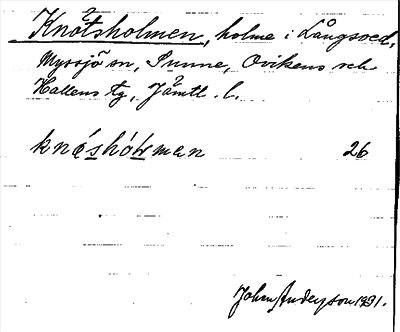 Knåtsholmen, holme i Långsved,
Myssjö sn, Sunne, Ovikens och
Hallens tg, Jämtl. l.
knéshówman 26
John Anderson 1931.